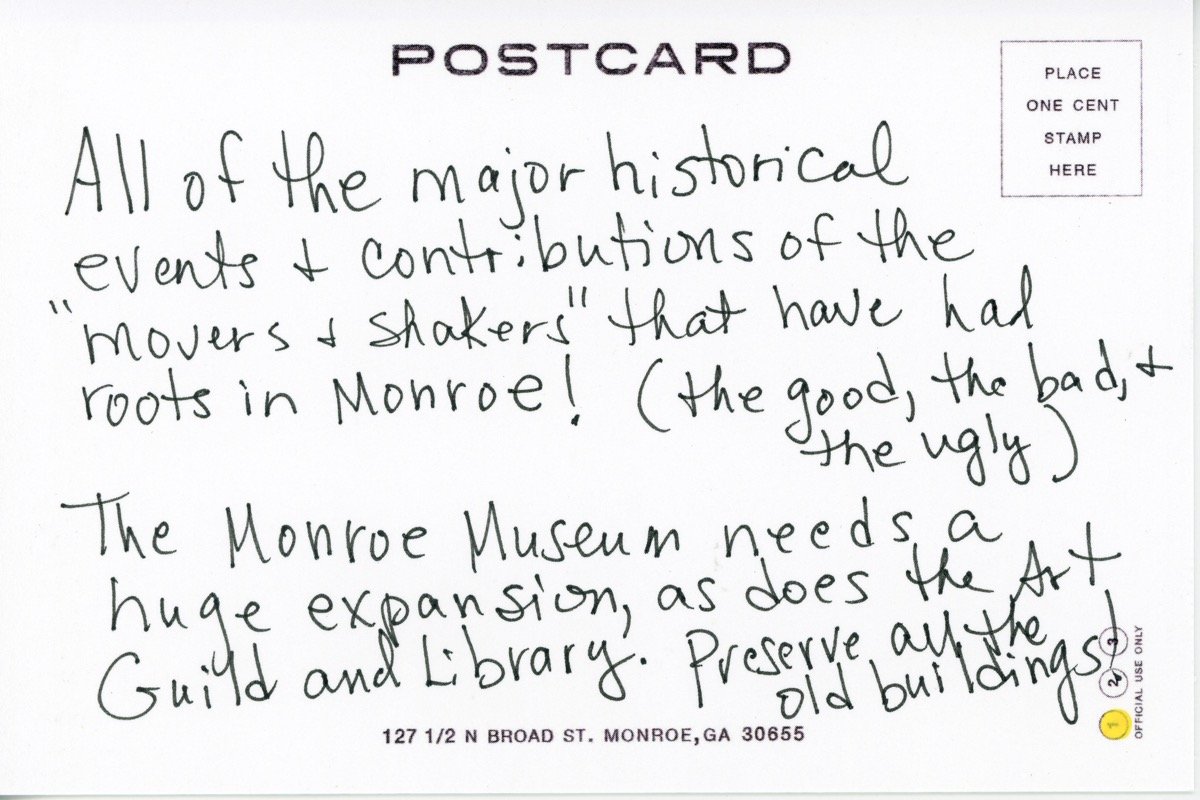 POSTCARD
PLACE
ONE CENT
STAMP
HERE
All of the major historical
events & contributions of the
"movers & shakers" that have had
roots in Monroe! (the good, the bad, &
the ugly)
The Monroe Museum needs a
huge expansion, as does the Art
Guild and Library. Preserve all the
old buildings!
127 1/2 N BROAD ST. MONROE, GA 30655
1 2 3
OFFICIAL USE ONLY